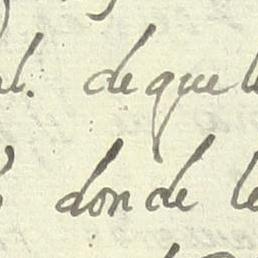 al. deque le
donde le